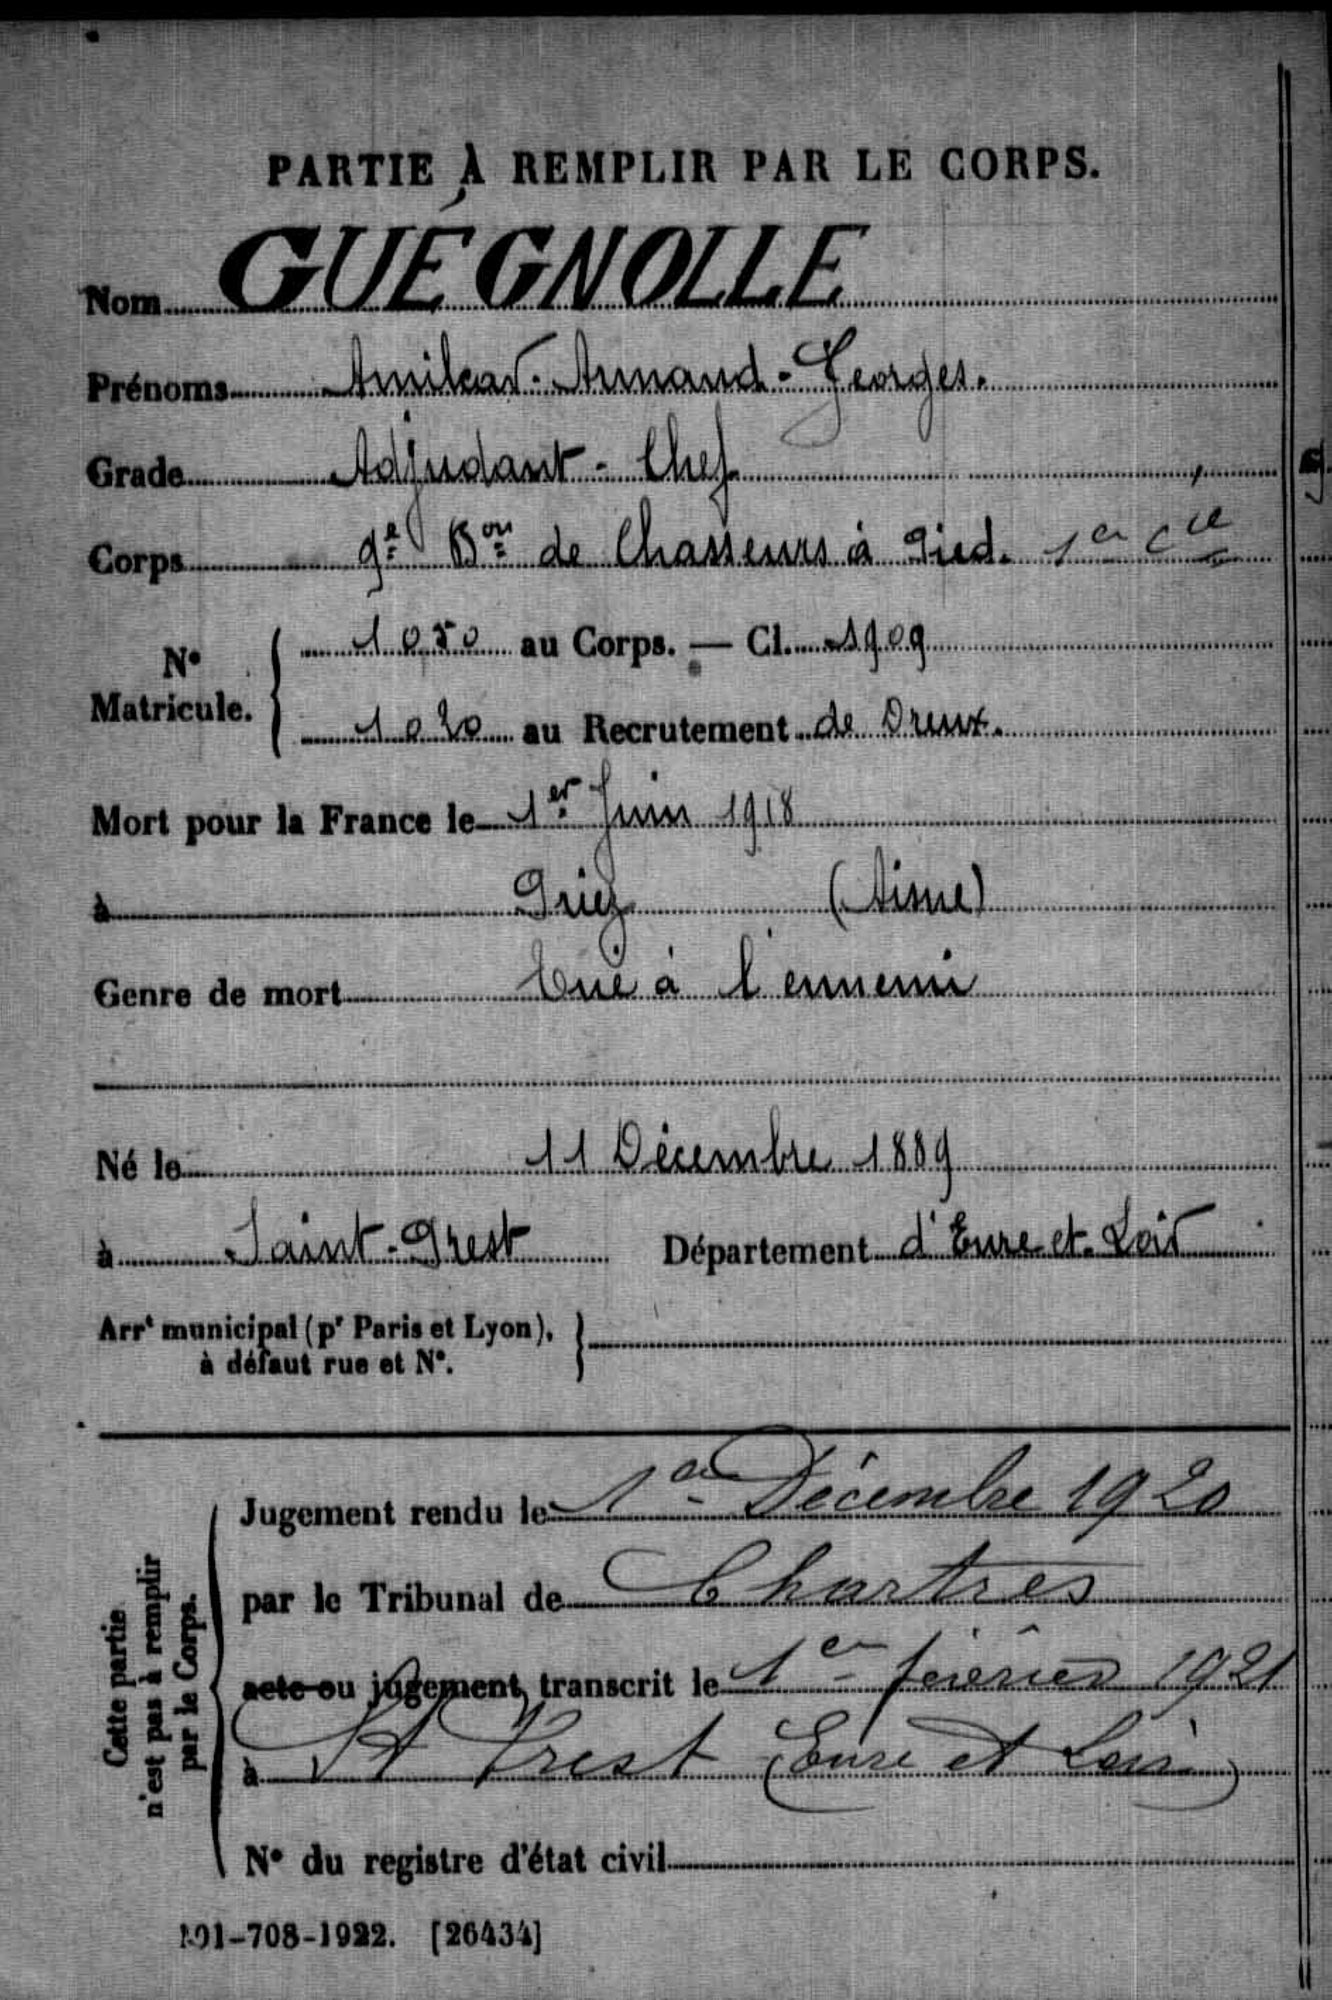 PARTIE À REMPLIR PAR LE CORPS.
Nom GUÉGNOLLE
Prénoms Amilcar-Armand-Georges.
Grade Adjudant-Chef
Corps 9e Bon de Chasseurs à Pied. 1er Cie
N° Matricule. 1050 au Corps. — Cl. 1909
1020 au Recrutement de Dreux.
Mort pour la France le 1er Juin 1918
à Priez (Aisne)
Genre de mort Tué à l'ennemi
Né le 11 Décembre 1889
à Saint-Prest Département d'Eure-et-Loir
Arrt municipal (pr Paris et Lyon),
à défaut rue et N°.
Cette partie
n'est pas à remplir
par le Corps.
Jugement rendu le 1er Décembre 1920
par le Tribunal de Chartres
acte ou jugement transcrit le 1er février 1921
à St Prest (Eure et Loir)
N° du registre d'état civil
101-708-1922. [26434]